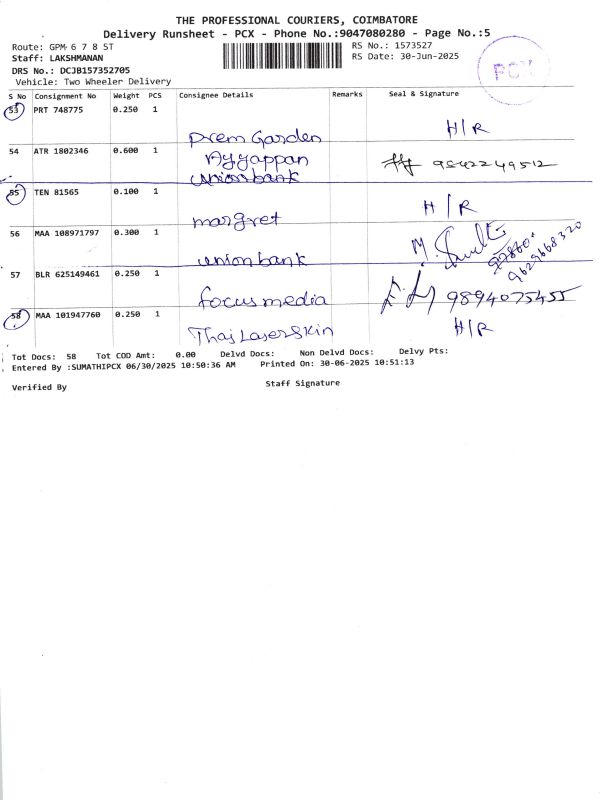 THE PROFESSIONAL COURIERS, COIMBATORE
Delivery Runsheet - PCX - Phone No.:9047080280 - Page No.:5
Route: GPM 6 7 8 ST
RS No.: 1573527
Staff: LAKSHMANAN
RS Date: 30-Jun-2025
DRS No.: DCJB157352705
Vehicle: Two Wheeler Delivery
PCX
S No Consignment No Weight PCS Consignee Details Remarks Seal & Signature
53 PRT 748775 0.250 1
Prem Garden H/R
54 ATR 1802346 0.600 1
Ayyappan 9842249512
union bank
55 TEN 81565 0.100 1
margret H/R
56 MAA 108971797 0.300 1
union bank 9629668320
57 BLR 625149461 0.250 1
focus media 9894075455
58 MAA 101947760 0.250 1
Thai Laser Skin H/R
Tot Docs: 58 Tot COD Amt: 0.00 Delvd Docs: Non Delvd Docs: Delvy Pts:
Entered By :SUMATHIPCX 06/30/2025 10:50:36 AM Printed On: 30-06-2025 10:51:13
Verified By Staff Signature